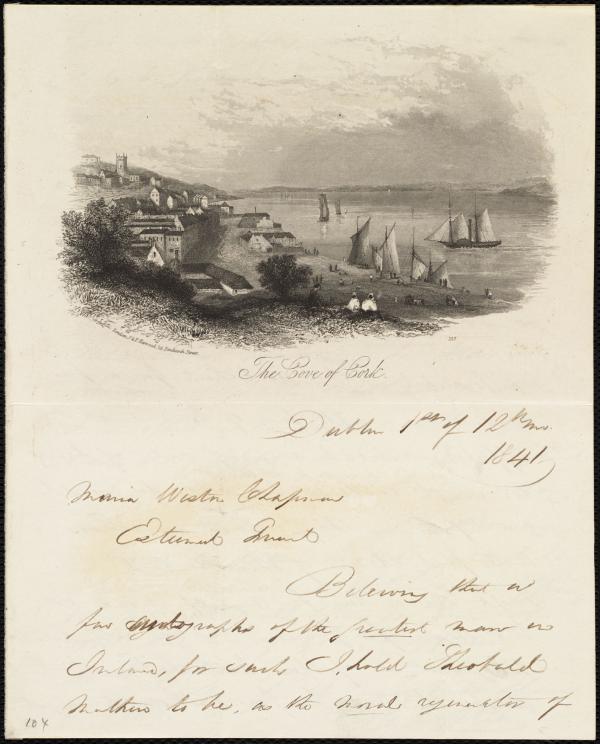 The Cove of Cork.
Dublin 1st of 12th mo.
1841.
Maria Weston Chapman
Esteemed Friend
Believing that a
few autographs of the greatest man in
Ireland, for such I hold Theobald
Mathew to be, as the moral regenerator of
104